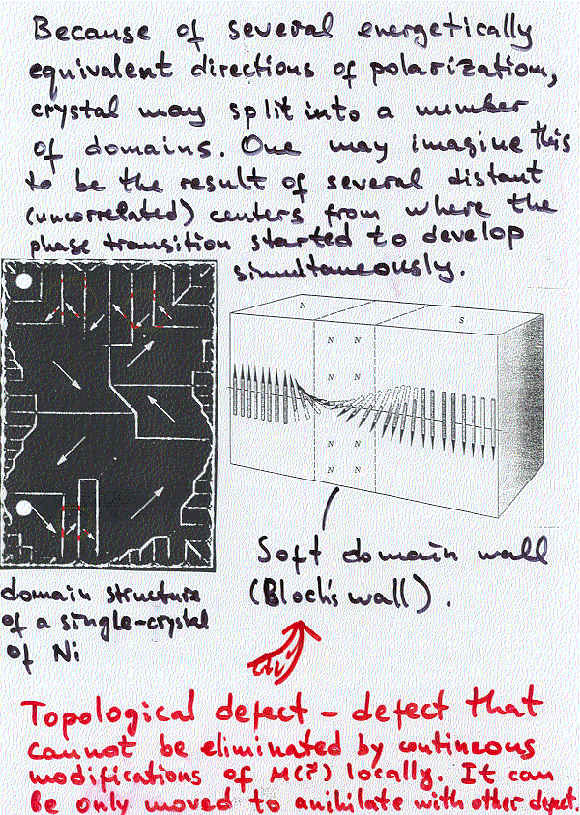 Because of several energetically
equivalent directions of polarization,
crystal may split into a number
of domains. One may imagine this
to be the result of several distant
(uncorrelated) centers from where the
phase transition started to develop
simultaneously.
N
S
N N
N N
N N
N N
Soft domain wall
(Bloch's wall).
domain structure
of a single-crystal
of Ni
Topological defect – defect that
cannot be eliminated by contineous
modifications of M(r⃗) locally. It can
be only moved to anihilate with other defect.